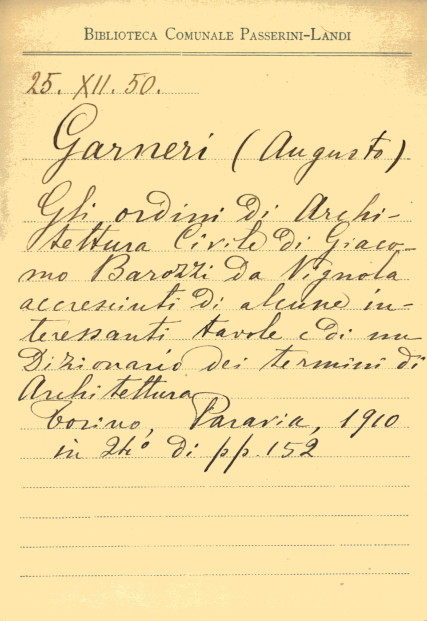 BIBLIOTECA COMUNALE PASSERINI-LANDI
25. XII. 50.
Garneri (Augusto)
Gli ordini di Archi-
tettura Civile di Giaco-
mo Barozzi da Vignola
accresciuti di alcune in-
teressanti tavole e di un
Dizionario dei termini di
Architettura
Torino, Paravia, 1910
in 24° di pp. 152